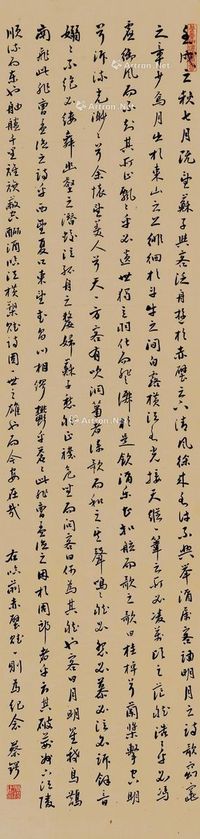 壬戌之秋七月既望蘇子與客泛舟遊於赤壁之下清風徐來水波不興舉酒屬客誦明月之詩歌窈窕
之章少焉月出於東山之上徘徊於斗牛之間白露橫江水光接天縱一葦之所如凌萬頃之茫然浩浩乎如馮
虛御風而不知其所止飄飄乎如遺世獨立羽化而登仙於是飲酒樂甚扣舷而歌之歌曰桂棹兮蘭槳擊空明
兮泝流光渺渺兮余懷望美人兮天一方客有吹洞簫者倚歌而和之其聲嗚嗚然如怨如慕如泣如訴餘音
嫋嫋不絕如縷舞幽壑之潛蛟泣孤舟之嫠婦蘇子愀然正襟危坐而問客曰何為其然也客曰月明星稀烏鵲
南飛此非曹孟德之詩乎西望夏口東望武昌山川相繆鬱乎蒼蒼此非曹孟德之困於周郎者乎方其破荊州下江陵
順流而東也舳艫千里旌旗蔽空釃酒臨江橫槊賦詩固一世之雄也而今安在哉 右前赤壁賦一則為紀念 蔡鍔